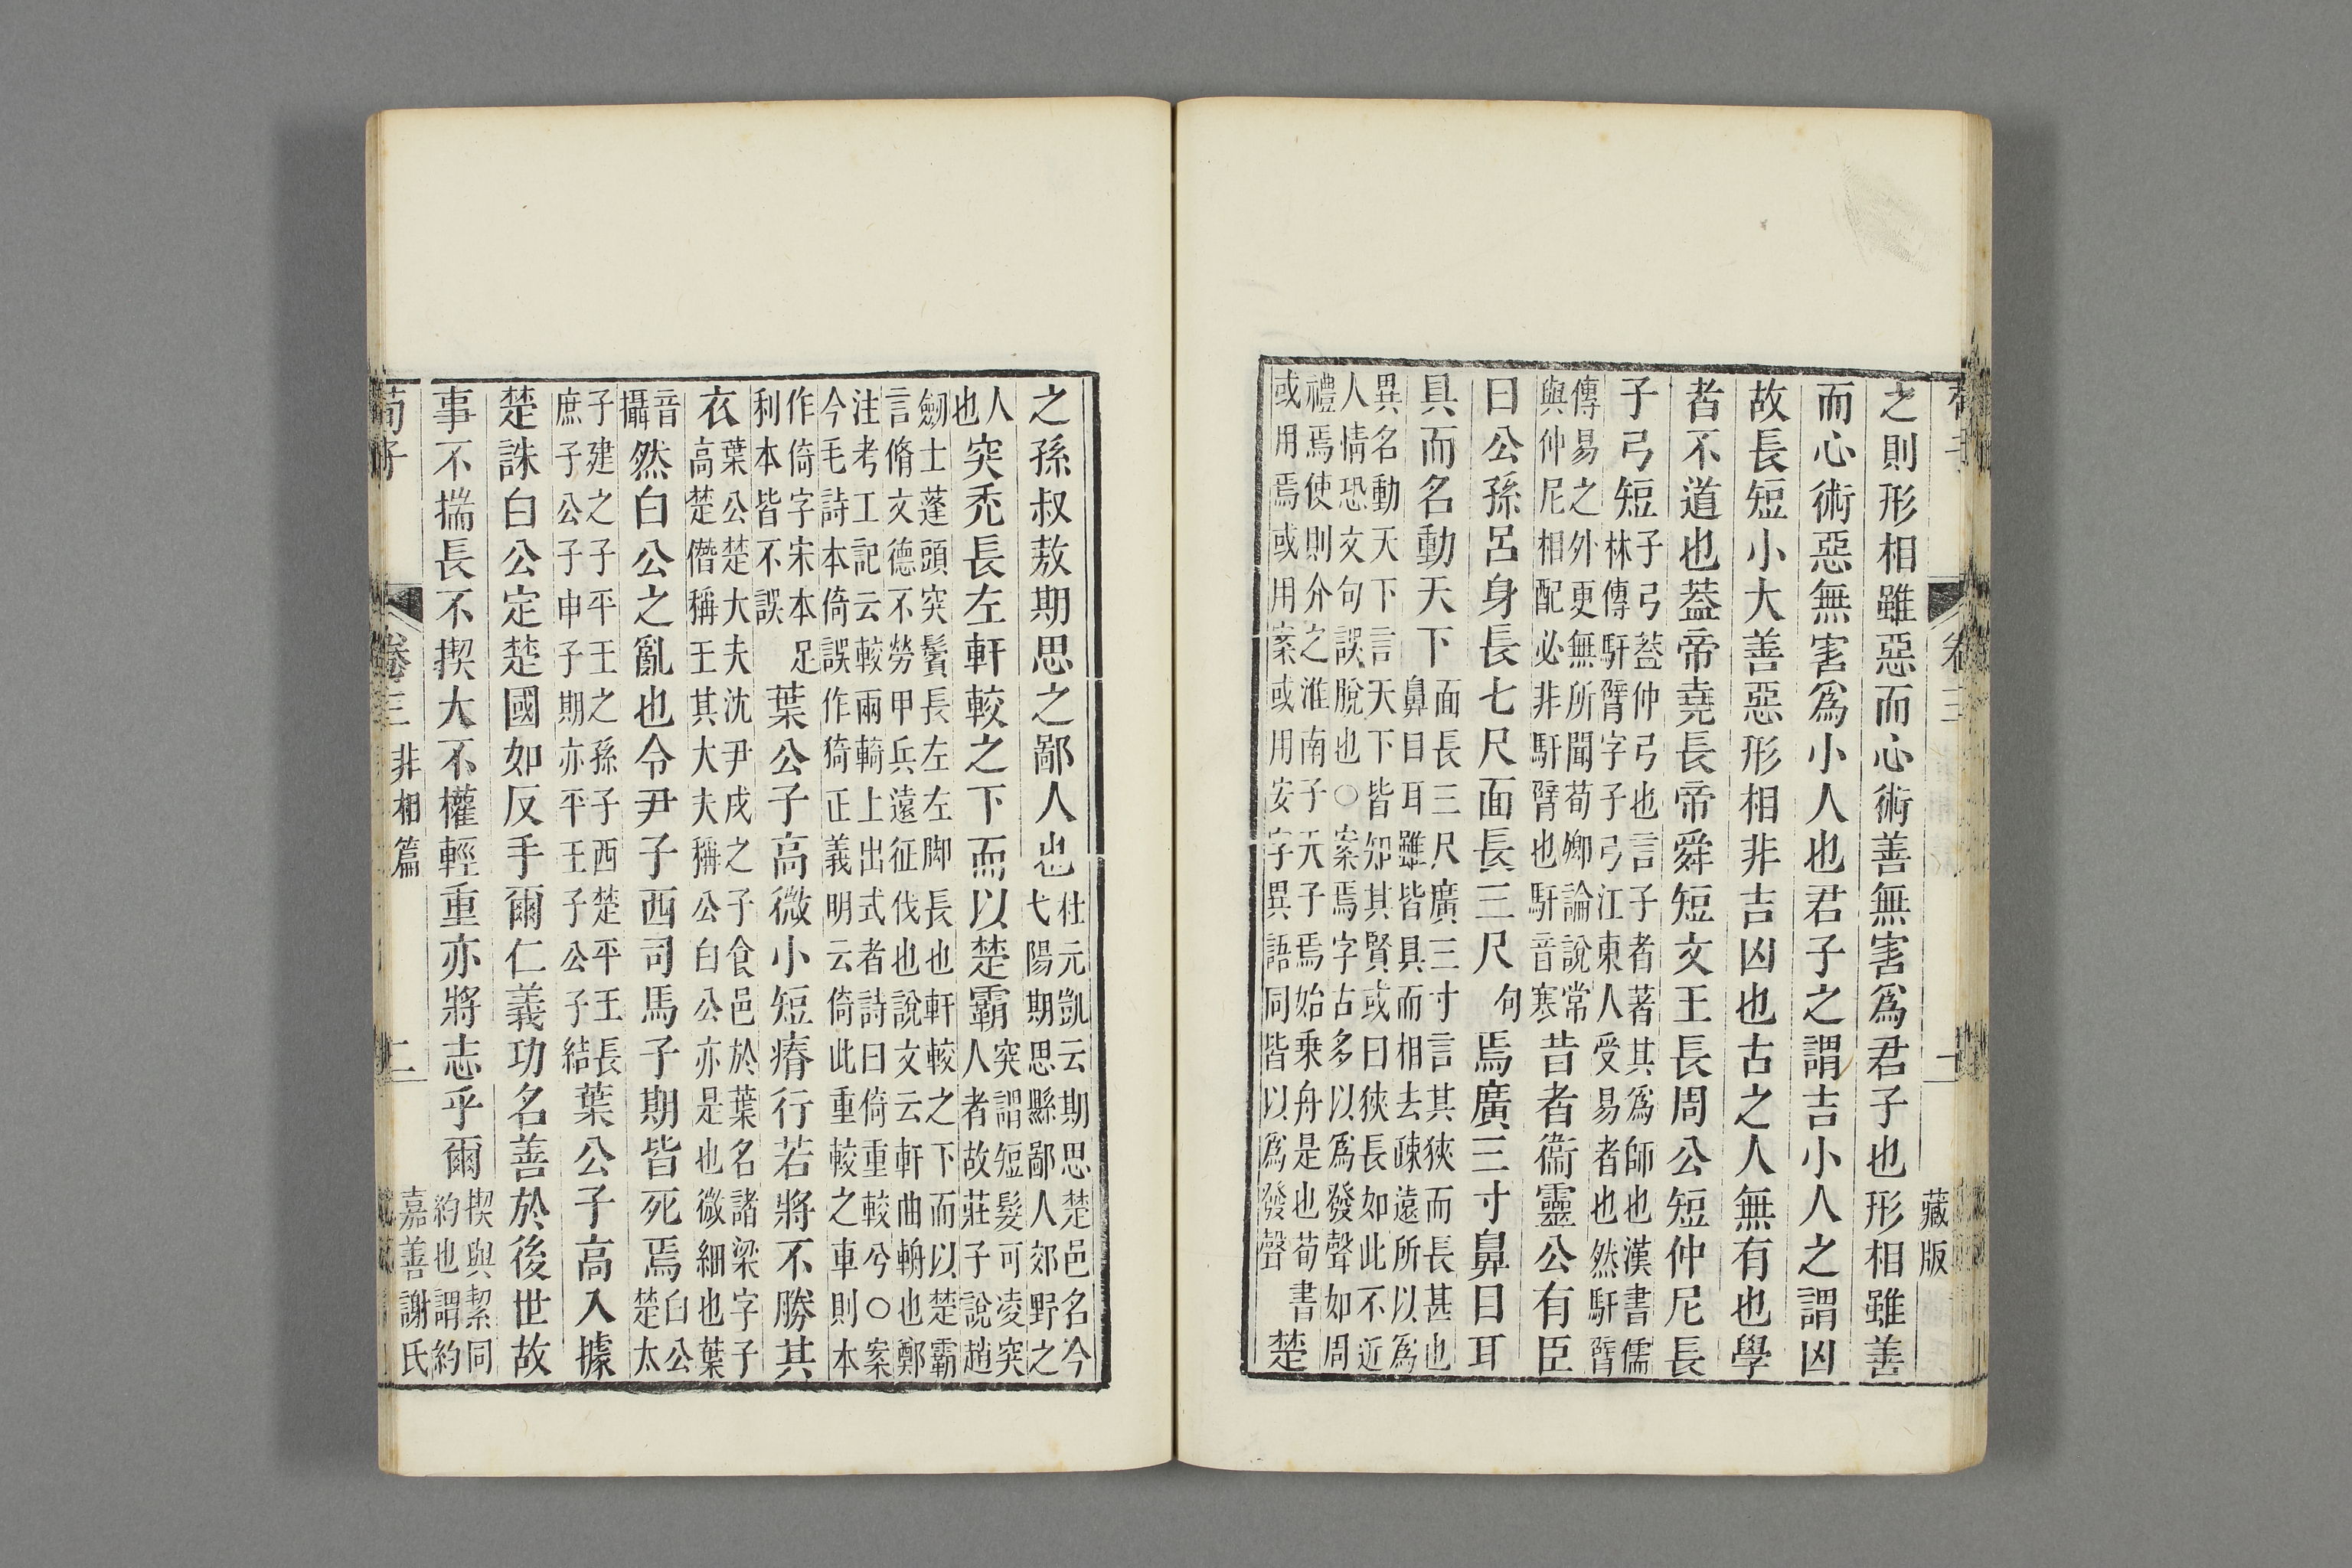 藏版
之則形相雖惡而心術善無害爲君子也形相雖善
而心術惡無害爲小人也君子之謂吉小人之謂凶
故長短小大善惡形相非吉凶也古之人無有也學
者不道也葢帝堯長帝舜短文王長周公短仲尼長
子弓短子弓葢仲弓也言子者著其爲師也漢書儒林傳馯臂字子弓江東人受易者也然馯臂
傳易之外更無所聞荀卿論說常與仲尼相配必非馯臂也馯音寒昔者衞靈公有臣
曰公孫呂身長七尺面長三尺句焉廣三寸鼻目耳
具而名動天下面長三尺廣三寸言其狹而長甚也鼻目耳雖皆具而相去疎遠所以爲
異名動天下言天下皆知其賢或曰狹長如此不近人情恐文句誤脫也○案焉字古多以爲發聲如周
禮焉使則介之淮南子天子焉始乗舟是也荀書或用焉或用案或用安字異語同皆以爲發聲楚
之孫叔敖期思之鄙人也杜元凱云期思楚邑名今弋陽期思縣鄙人郊野之
人也突禿長左軒較之下而以楚霸突謂短髮可凌突人者故莊子說趙
劒士蓬頭突鬢長左左脚長也軒較之下而以楚霸言脩文德不勞甲兵遠征伐也說文云軒曲輈也鄭
注考工記云較兩輢上出式者詩曰倚重較兮○案今毛詩本倚誤作猗正義明云倚此重較之車則本
作倚字宋本足利本皆不誤葉公子高微小短瘠行若將不勝其
衣葉公楚大夫沈尹戌之子食邑於葉名諸梁字子高楚僭稱王其大夫稱公白公亦是也微細也葉
音攝然白公之亂也令尹子西司馬子期皆死焉白公楚太
子建之子平王之孫子西楚平王長庶子公子申子期亦平王子公子結葉公子高入據
楚誅白公定楚國如反手爾仁義功名善於後世故
事不揣長不揳大不權輕重亦將志乎爾揳與絜同約也謂約
荀子
卷三
非相篇
二
嘉善謝氏